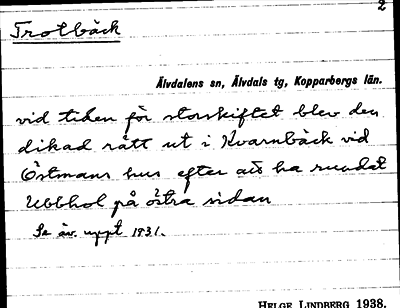 2
Trolbäck
Älvdalens sn, Älvdals tg, Kopparbergs län.
vid tiden för storskiftet blev den
dikad rätt ut i Kvarnbäck vid
Östmans hus efter att ha rundat
Ubbhol på östra sidan
Se äv. uppt 1931.
HELGE LINDBERG 1938.